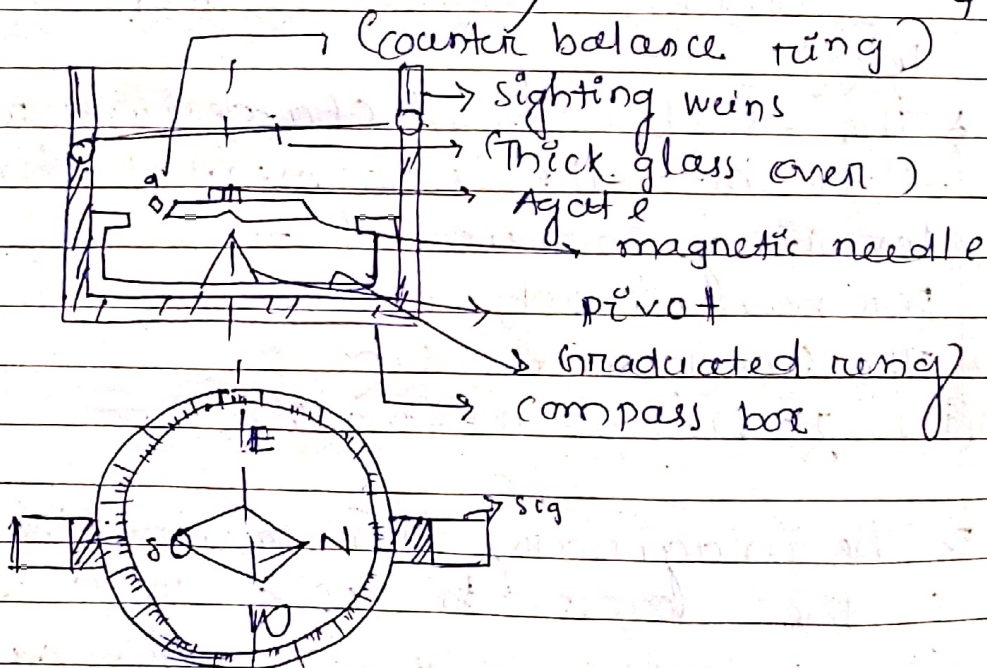 (counter balance ring)
sighting weins
(Thick glass over)
Agate
magnetic needle
pivot
Graduated ring
compass box
E
sig
S N
W